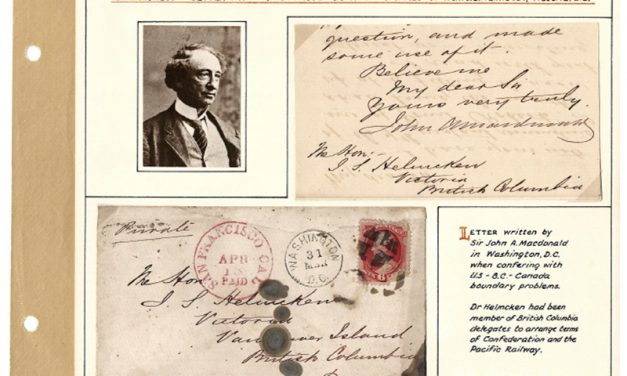 question, and made
some use of it.
Believe me
My dear Sir
Yours very truly
John A Macdonald
The Hon:
J. S. Helmcken
Victoria
British Columbia
Private
SAN FRANCISCO CAL
APR
PAID
WASHINGTON
31
MAR
D.C.
The Hon:
J. S. Helmcken
Victoria
Vancouver Island
British Columbia
LETTER written by
Sir John A. Macdonald
in Washington, D.C.
when confering with
U.S - B.C. - Canada
boundary problems.
Dr Helmcken had been
member of British Columbia
delegates to arrange terms
of Confederation and the
Pacific Railway.